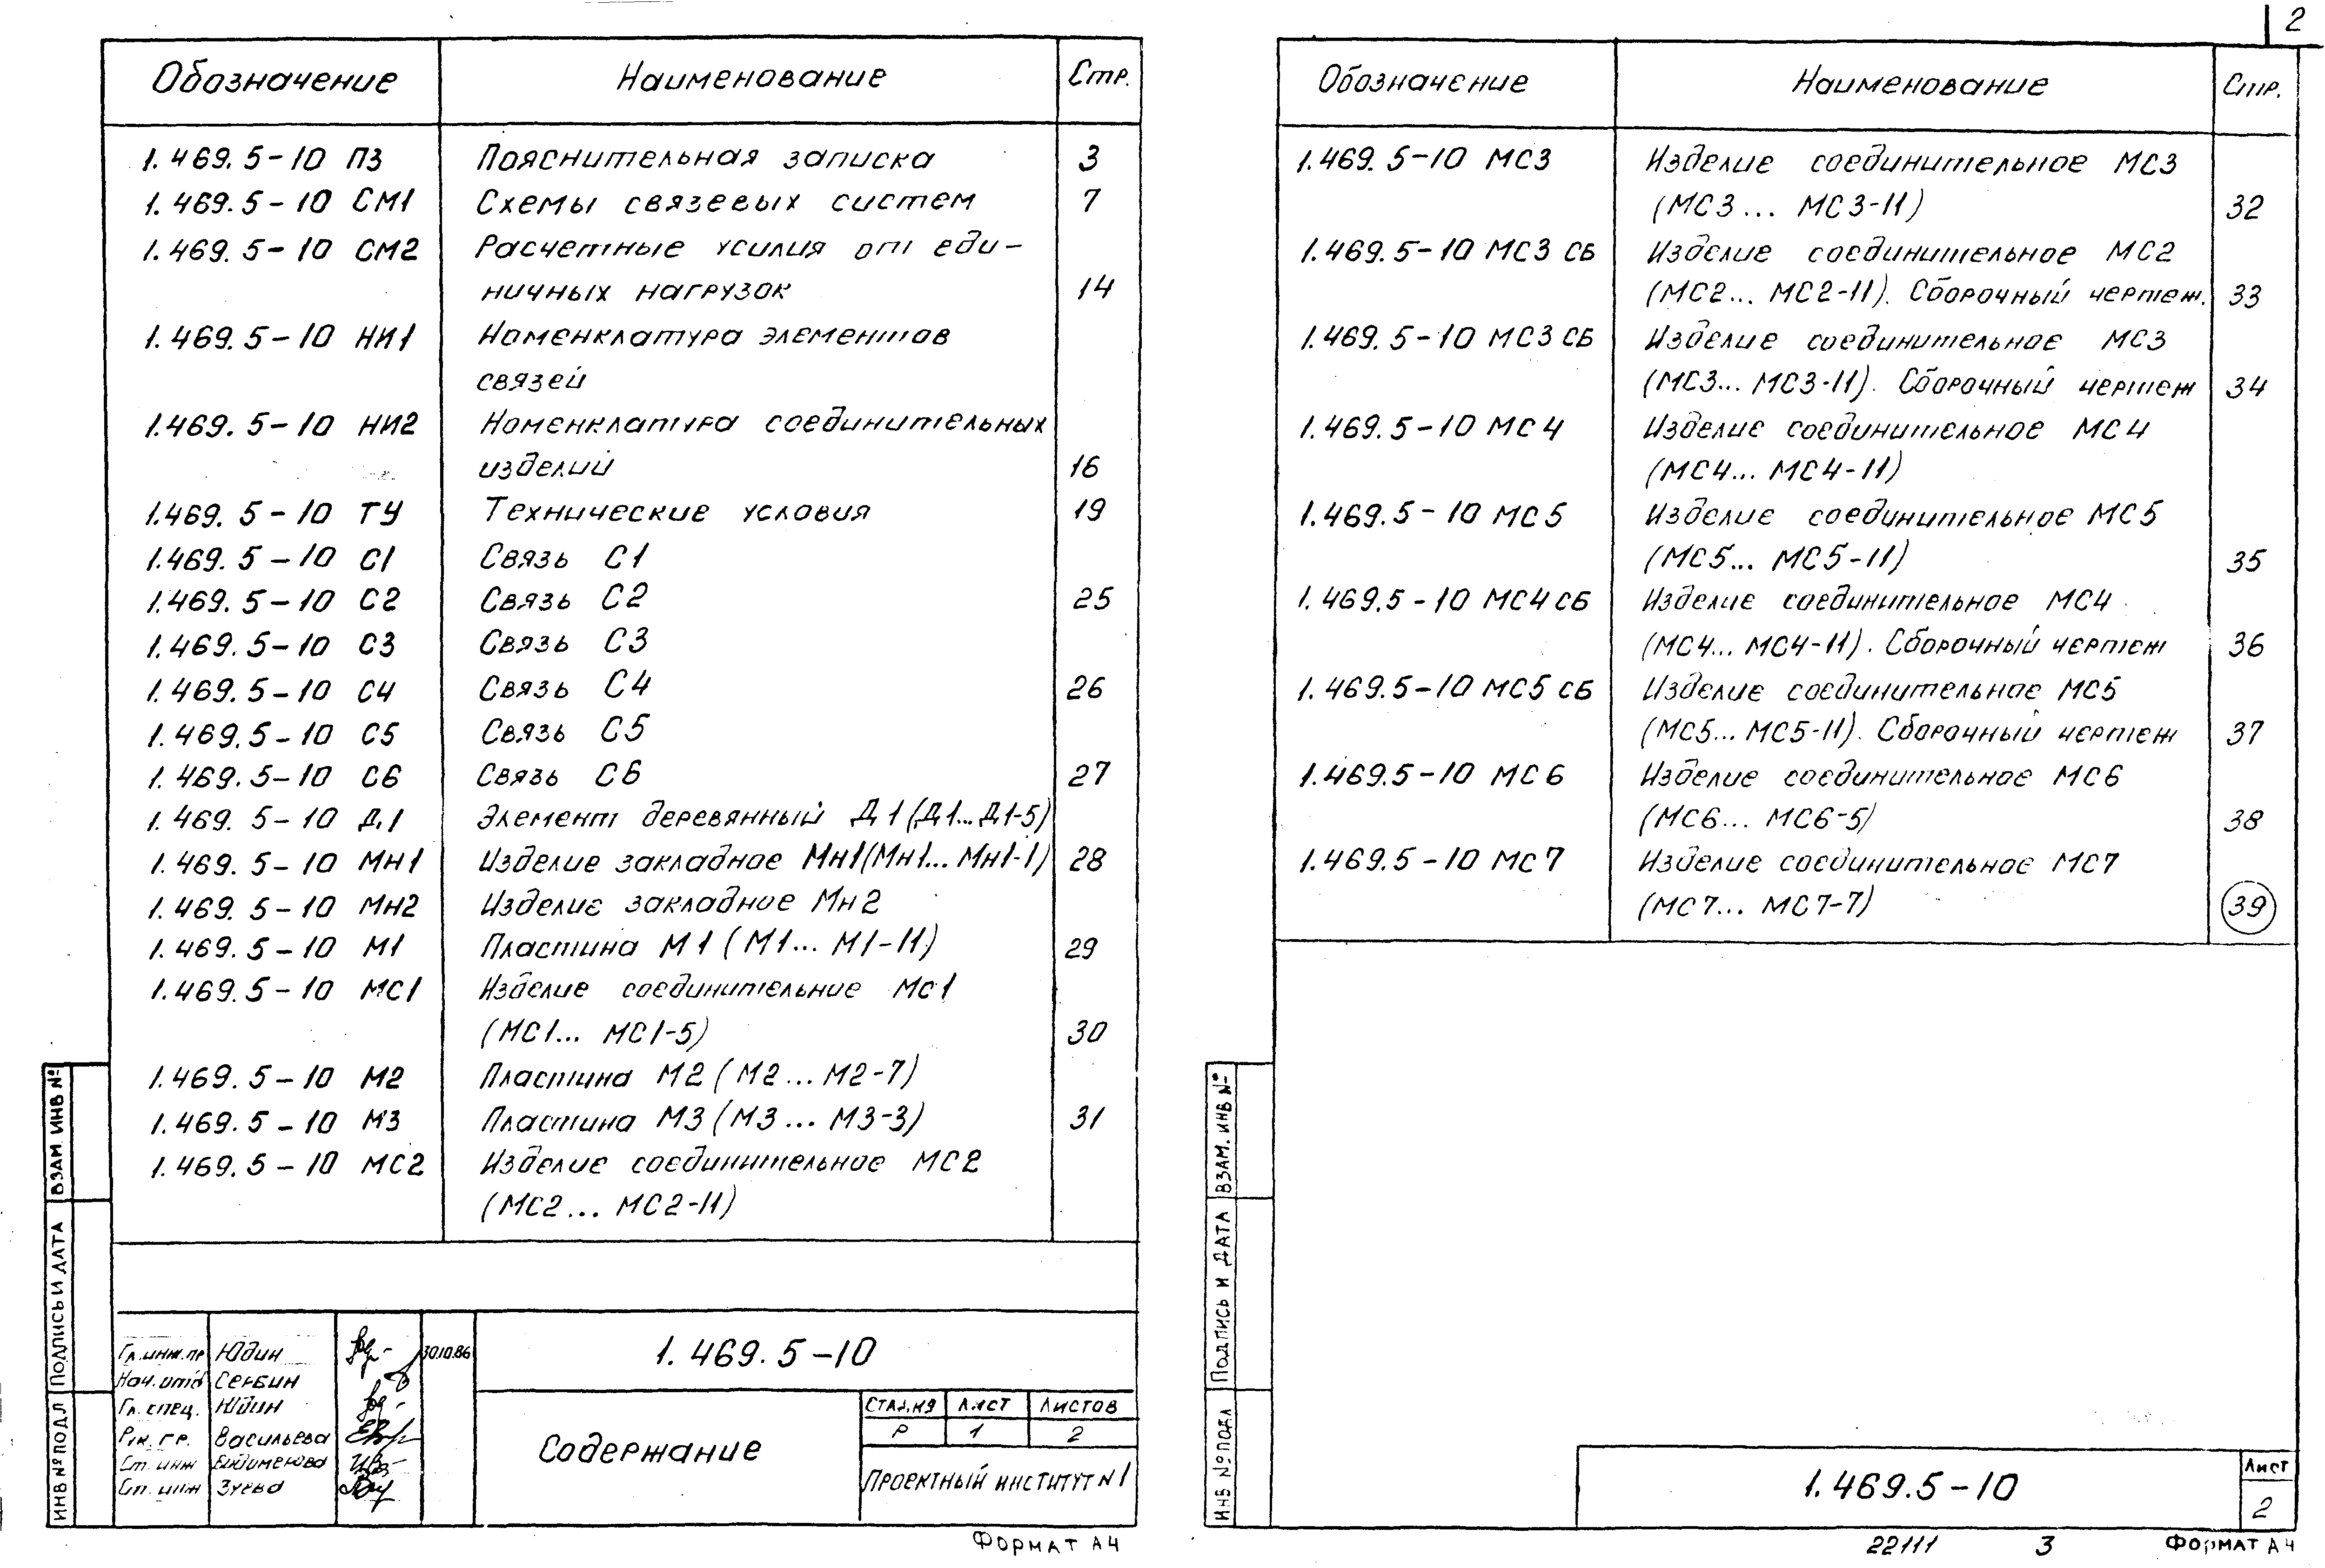 2
Обозначение Наименование Стр.
1.469.5-10 ПЗ Пояснительная записка 3
1.469.5-10 СМ1 Схемы связевых систем 7
1.469.5-10 СМ2 Расчетные усилия от еди-
ничных нагрузок 14
1.469.5-10 НИ1 Номенклатура элементов
связей
1.469.5-10 НИ2 Номенклатура соединительных
изделий 16
1.469.5-10 ТУ Технические условия 19
1.469.5-10 С1 Связь С1
1.469.5-10 С2 Связь С2 25
1.469.5-10 С3 Связь С3
1.469.5-10 С4 Связь С4 26
1.469.5-10 С5 Связь С5
1.469.5-10 С6 Связь С6 27
1.469.5-10 Д1 Элемент деревянный Д1 (Д1...Д1-5)
1.469.5-10 Мн1 Изделие закладное Мн1(Мн1...Мн1-1) 28
1.469.5-10 Мн2 Изделие закладное Мн2
1.469.5-10 М1 Пластина М1 (М1... М1-11) 29
1.469.5-10 МС1 Изделие соединительние Мс1
(МС1... МС1-5) 30
1.469.5-10 М2 Пластина М2 (М2... М2-7)
1.469.5-10 М3 Пластина М3 (М3... М3-3) 31
1.469.5-10 МС2 Изделие соединительное МС2
(МС2... МС2-11)
Гл.инж.пр Юдин 30.10.86
Нач.отд Сербин
Гл. спец. Юдин
Рук. гр. Васильева
Ст. инж
Ст. инж Зуева
1.469.5-10
Содержание
Стадия Лист Листов
Р 1 2
Проектный институт №1
Инв № подл Подпись и дата Взам. инв №
Формат А4
Обозначение Наименование Стр.
1.469.5-10 МС3 Изделие соединительное МС3
(МС3... МС3-11) 32
1.469.5-10 МС3 СБ Изделие соединительное МС2
(МС2... МС2-11). Сборочный чертеж. 33
1.469.5-10 МС3 СБ Изделие соединительное МС3
(МС3... МС3-11). Сборочный чертеж 34
1.469.5-10 МС4 Изделие соединительное МС4
(МС4... МС4-11)
1.469.5-10 МС5 Изделие соединительное МС5
(МС5... МС5-11) 35
1.469.5-10 МС4 СБ Изделие соединительное МС4
(МС4... МС4-11). Сборочный чертеж 36
1.469.5-10 МС5 СБ Изделие соединительное МС5
(МС5... МС5-11). Сборочный чертеж 37
1.469.5-10 МС6 Изделие соединительное МС6
(МС6... МС6-5) 38
1.469.5-10 МС7 Изделие соединительное МС7
(МС7... МС7-7) 39
Инв № подл Подпись и дата Взам. инв №
1.469.5-10
Лист
2
22111 3 Формат А4